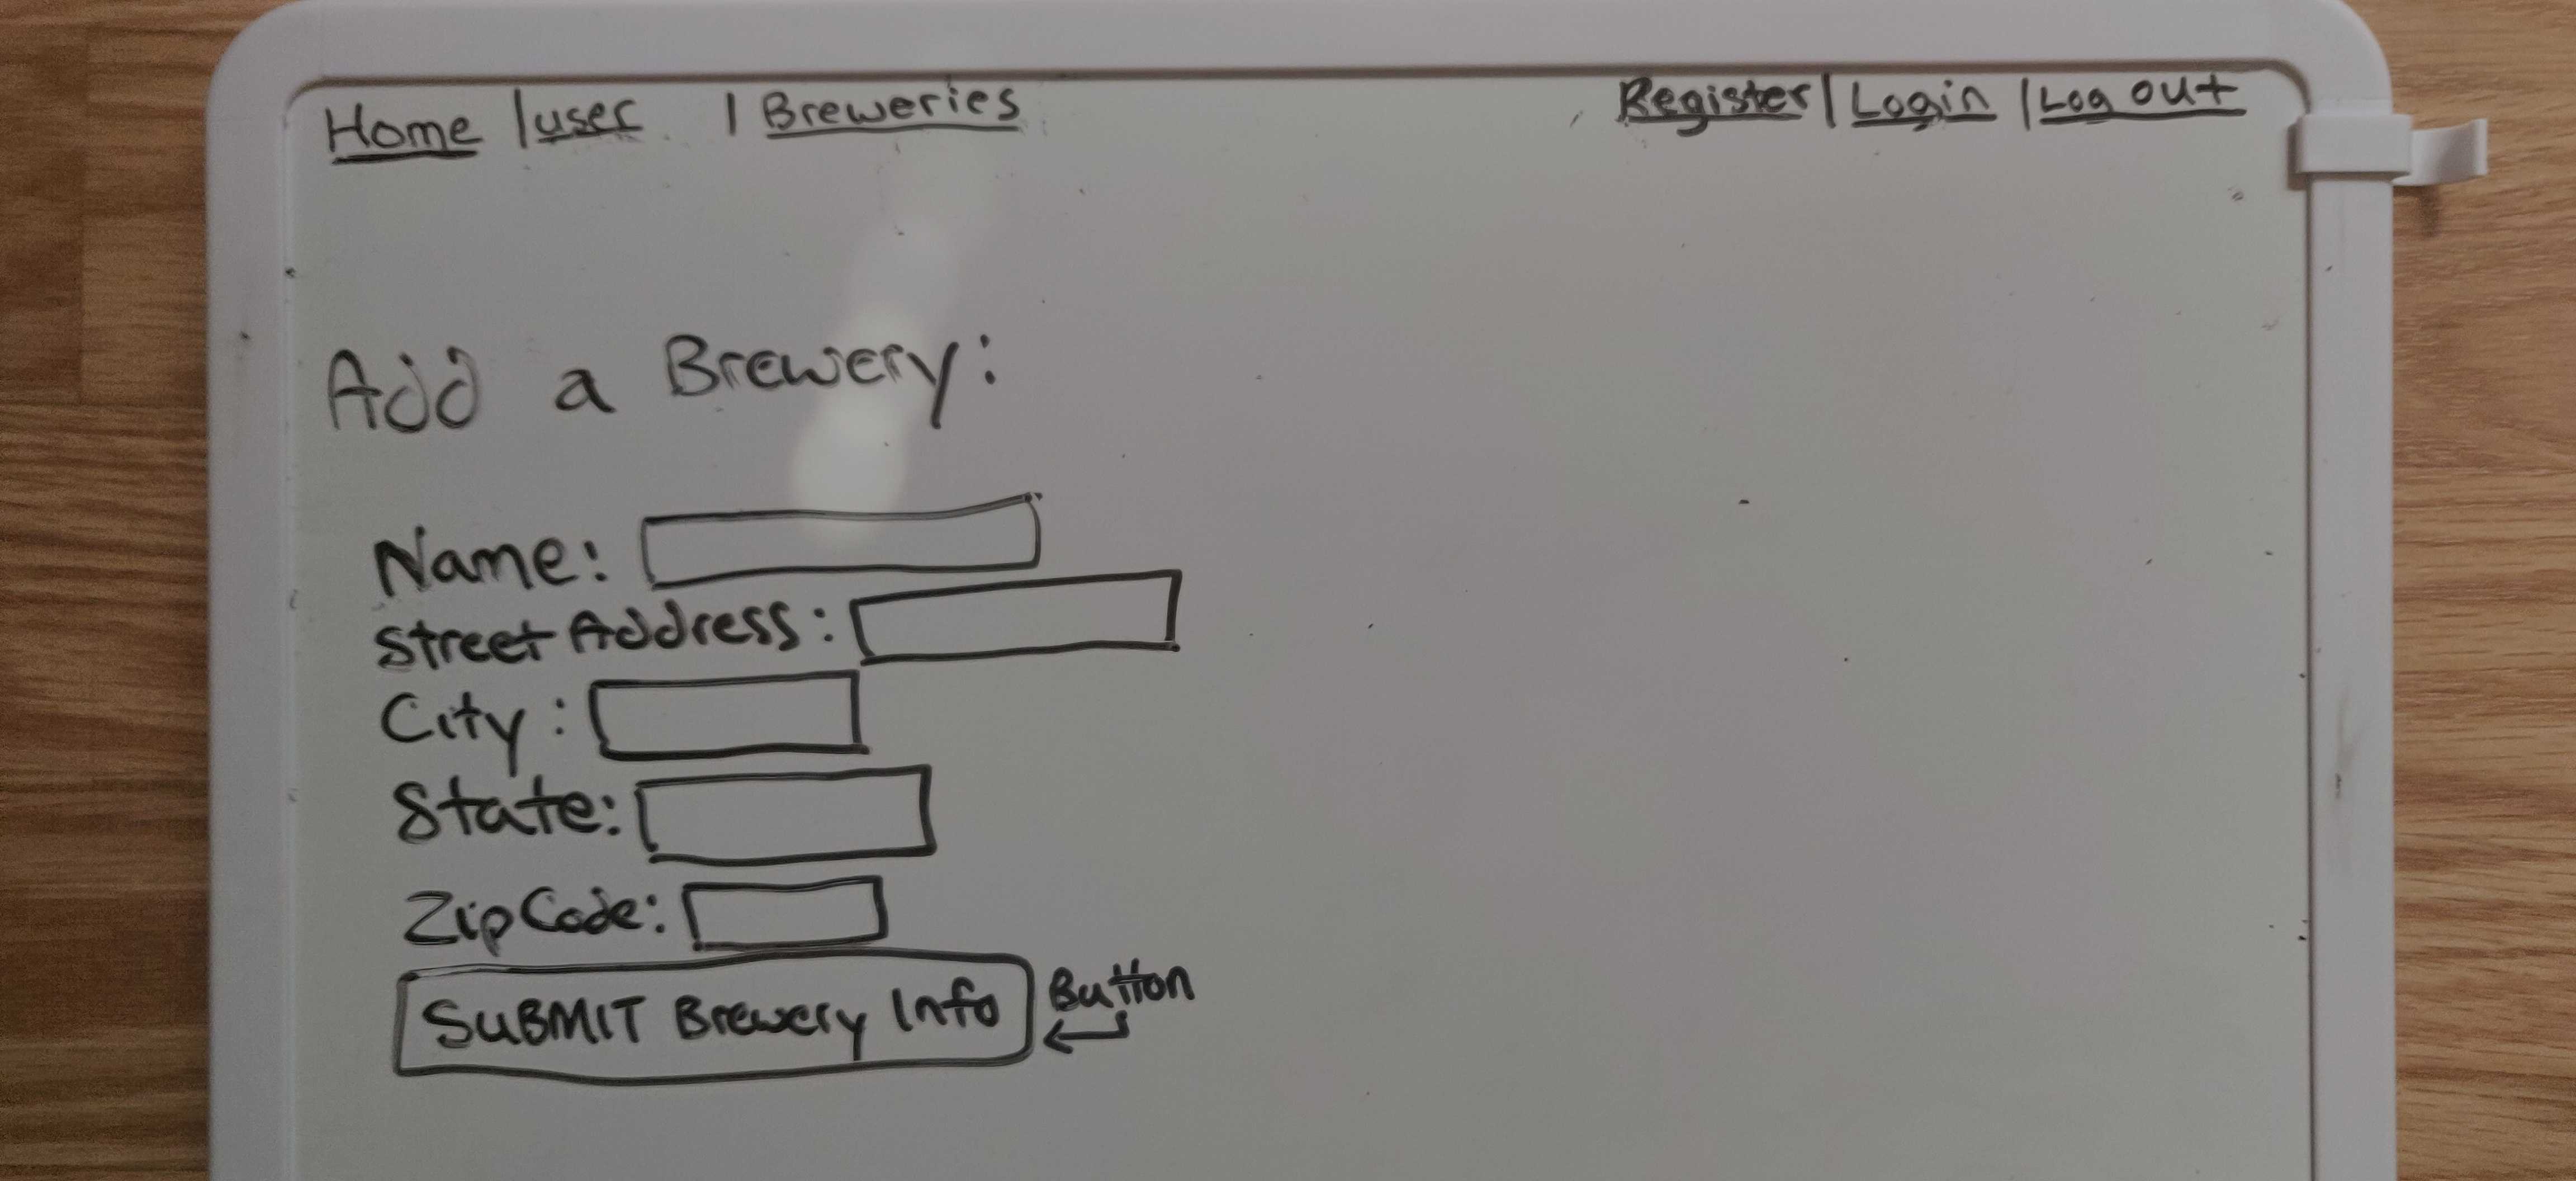 Home | user | Breweries Register | Login | Log out
Add a Brewery:
Name:
Street Address:
City:
State:
Zip Code:
SUBMIT Brewery Info Button